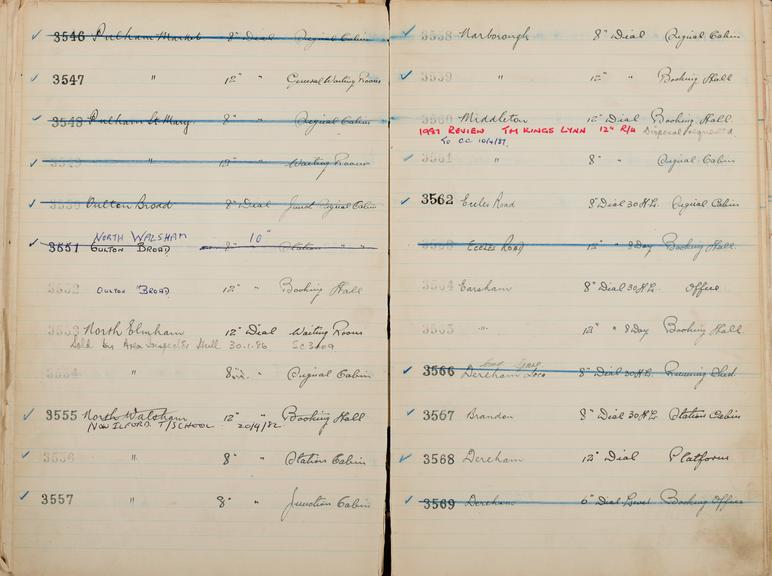 3546 Pulham Market 8" Dial Signal Cabin
3547 " 12" " General Waiting Room
3548 Pulham St. Mary 8" " Signal Cabin
3549 " 12" " Waiting Room
3550 Oulton Broad 8" Dial Junct Signal Cabin
NORTH WALSHAM 10"
3551 OULTON BROAD 8" Station " "
3552 OULTON BROAD 12" " Booking Hall
3553 North Elmham 12" Dial Waiting Room
Sold by Area Inspector Hull 30.1.86
3554 " 8" " Signal Cabin
3555 North Walsham 12" " Booking Hall
NOW ILFORD T/SCHOOL 20/4/82
3556 " 8" " Station Cabin
3557 " 8" " Junction Cabin
3558 Narborough 8" Dial Signal Cabin
3559 " 12" " Booking Hall
3560 Middleton 12" Dial Booking Hall
1987 REVIEW TM KINGS LYNN 12" R/H Disposal requested
To CC 10/4/87.
3561 " 8" " Signal Cabin
3562 Eccles Road 8" Dial 30 H.L. Signal Cabin
3563 ECCLES ROAD 12" " 8 Day Booking Hall
3564 Earsham 8" Dial 30 H.L. Office
3565 " 12" " 8 Day Booking Hall
3566 Dereham Loco 8" Dial 30 H.L. Running Shed
3567 Brandon 8" Dial 30 H.L. Station Cabin
3568 Dereham 12" Dial Platform
3569 Dereham 6" Dial Lever Booking Office